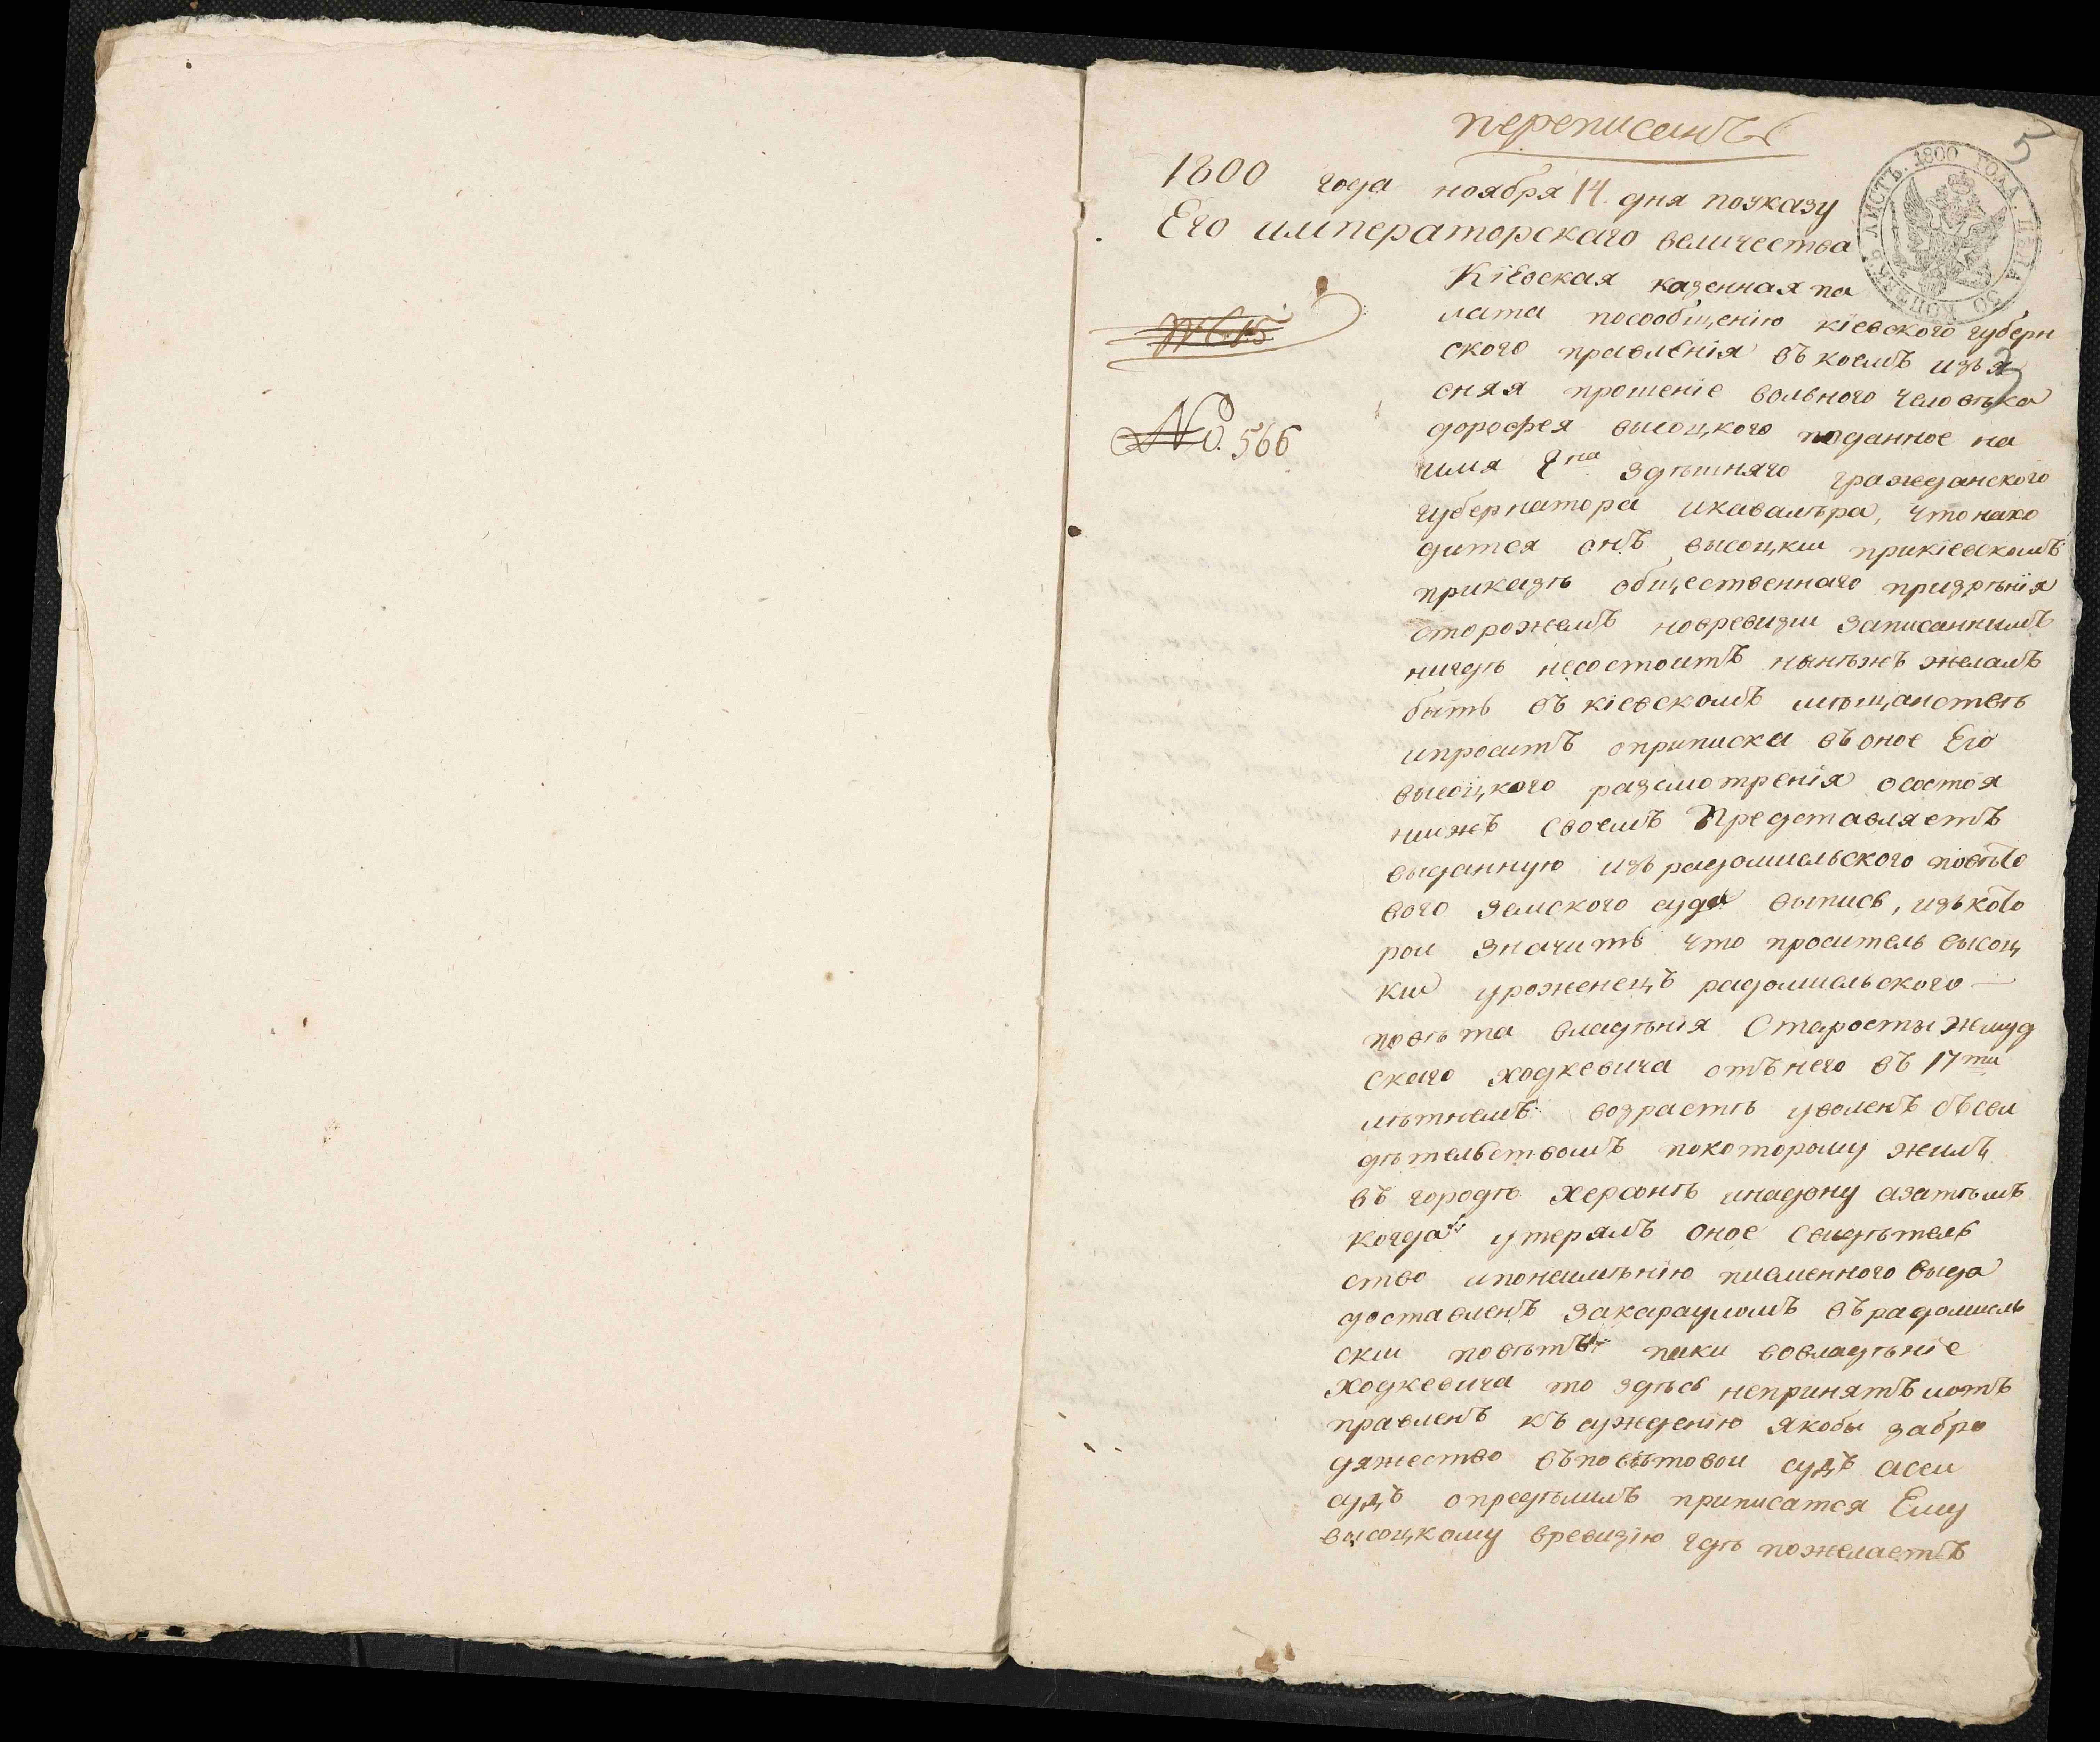 переписанъ
5
1800 года ноября 14. дня поуказу
Его императорскаго величества
ЛИСТЪ. 1800 ГОДА. ЦЕНА 30 КОПѢЕКЪ.
Кіевская казенная па
лата посообщенію кіевского губерн
ского правленія въ коемъ изъя
сняя прошеніе вольного человѣка
дорофея высоцкого поданное на
имя Гна здѣшняго гражданского
губернатора икавалѣра, что нахо
дится онъ высоцкии прикіевскомъ
приказѣ общественнаго призрѣнія
сторожемъ новревизии записаннимъ
нигдѣ несостоитъ нынѣжъ желаетъ
быть въ кіевскомъ мѣщанствѣ
ипроситъ оприписка въ оное Его
высоцкого разсмотренія осостоя
нижъ своемъ Представляетъ
выданную изъ радомисльского повѣто
вого земского суда выпись, изъ кото
рои значитъ что проситель высоц
кии уроженецъ радомисльского
повѣта владѣнія Старосты жмуд
скаго ходкевича отъ него въ 17ти
лѣтнемъ возрастѣ уволенъ съсви
дѣтельствомъ покоторому жилъ
въ городѣ херсонѣ инадону азатѣмъ
когда утерялъ оное свидѣтель
ство ипонеимѣнію писменного вида
доставленъ закарауломъ въ радомисль
скии повѣтъ паки вовладѣніе
ходкевича то здѣсь непринятъ иотъ
правленъ къ сужденію якобы забро
дяжество въ повѣтовои судъ асеи
судъ опредѣлилъ приписатся Ему
высоцкому вревизію гдѣ пожелаетъ
No. 566